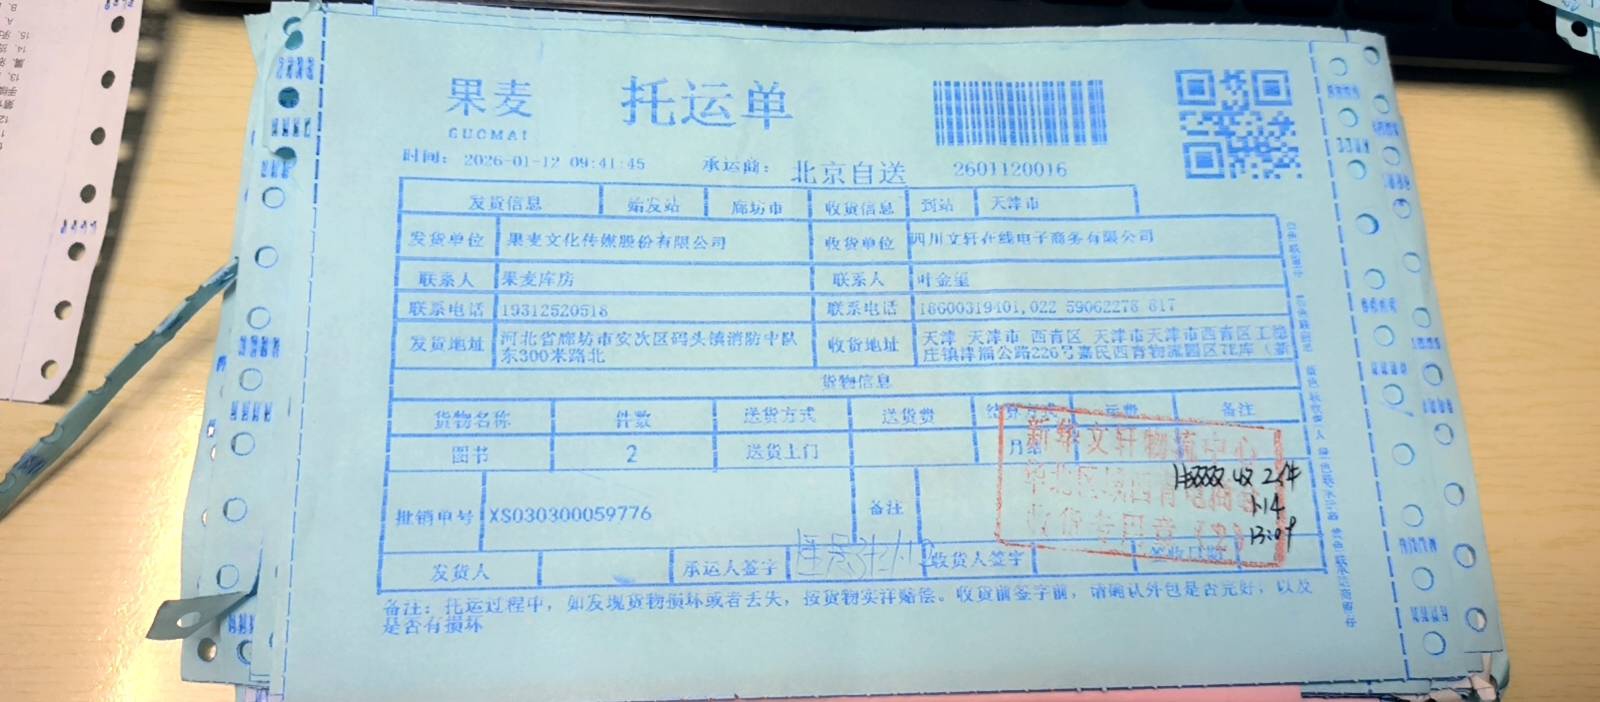 果麦
GUOMAI
托运单
时间: 2026-01-12 09:41:45
承运商: 北京自送
2601120016
发货信息 始发站 廊坊市 收货信息 到站 天津市
发货单位 果麦文化传媒股份有限公司 收货单位 四川文轩在线电子商务有限公司
联系人 果麦库房 联系人 叶金玺
联系电话 19312520518 联系电话 18600319401,022 59062278 817
发货地址 河北省廊坊市安次区码头镇消防中队
东300米路北
收货地址 天津 天津市 西青区 天津市天津市西青区王稳
庄镇津淄公路226号嘉民西青物流园区花库(新
货物信息
货物名称 件数 送货方式 送货费 结算方式 运费 备注
图书 2 送货上门 月结
批销单号 XS030300059776 备注
新华文轩物流中心
收货专用章(2)
收2件
1.14
13:09
发货人 承运人签字 收货人签字 签收日期
备注: 托运过程中, 如发现货物损坏或者丢失, 按货物实洋赔偿。收货前签字前, 请确认外包是否完好, 以及
是否有损坏